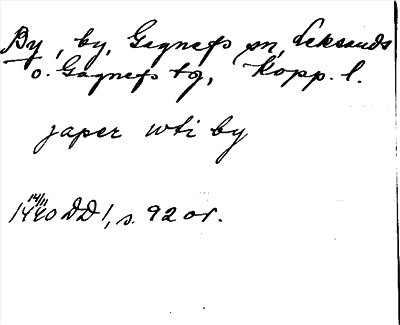 By, by, Gagnefs sn, Leksands
o. Gagnefs tg, Kopp. l.
japer wti by
14/11
1440 DD 1, s. 92 or.